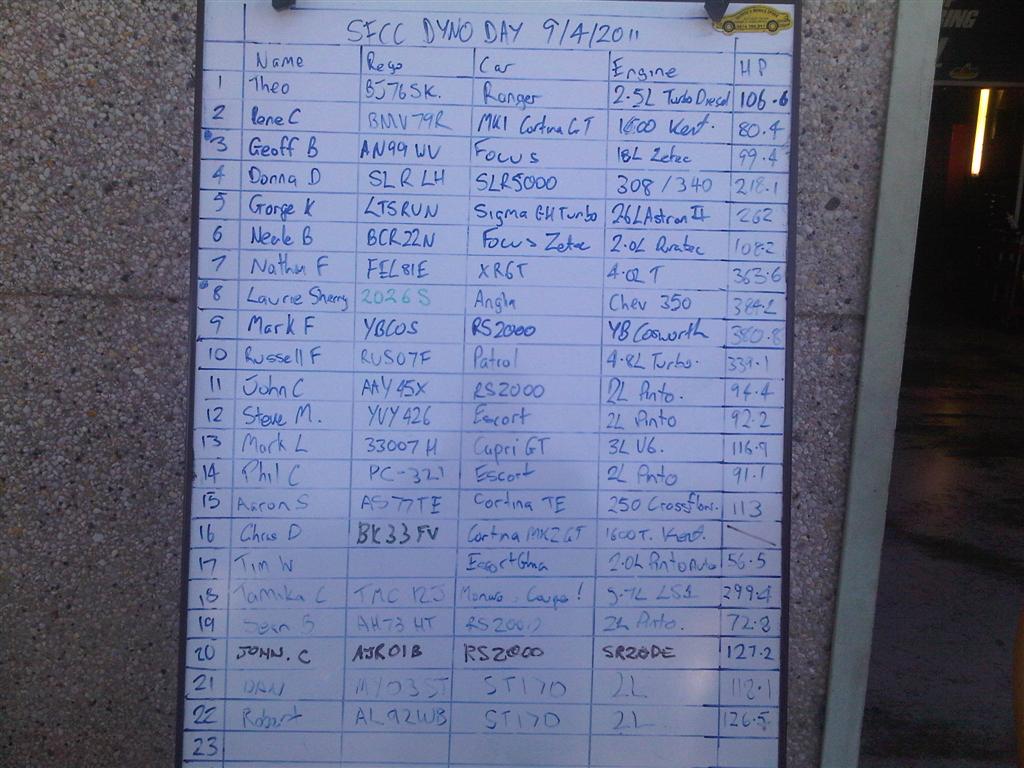 SFCC DYNO DAY 9/4/2011
Name Rego Car Engine HP
1 Theo B576SK. Ranger 2.5L Turbo Diesel 106.6
2 C BMV79R MK1 Cortina GT 1600 Kent. 80.4
3 Geoff B AN99WV Focus 18L Zetec 99.4
4 Donna D SLR LH SLR5000 308/340 218.1
5 Gorge K LTSRUN Sigma GH Turbo 26L Astron II 262
6 Neale B BCR22N Focus Zetec 2.0L Duratec 108.2
7 Nathan F FEL81E XR6T 4.0L T 363.6
8 Laurie Sherry 2026S Anglia Chev 350
9 Mark F YBCOS RS2000 YB Cosworth 380.8
10 Russell F RUS07F Patrol 4.8L Turbo. 339.1
11 John C AAY45X RS2000 2L Pinto. 94.4
12 Steve M. YVY426 Escort 2L Pinto 92.2
13 Mark L 33007H Capri GT 3L V6. 116.9
14 Phil C PC-321 Escort 2L Pinto 91.1
15 Aaron S AS77TE Cortina TE 250 Crossflow. 113
16 Chris D BK33FV Cortina MK2 GT 1600 T. Kent.
17 Tim W Escort Ghia 2.0L Pinto Auto 56.5
18 Tamika C TMC12J Monaro Coupe! 5.7L LS1 299.4
19 Sean B AH73HT RS2000 2L Pinto. 72.8
20 JOHN. C AJR01B RS2000 SR20DE 127.2
21 DAN MY03ST ST170 2L 112.1
22 Robert AL92WB ST170 2L 126.5
23